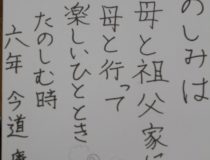 のしみは
母と祖父家に
母と行って
楽しいひととき
たのしむ時
六年 今道